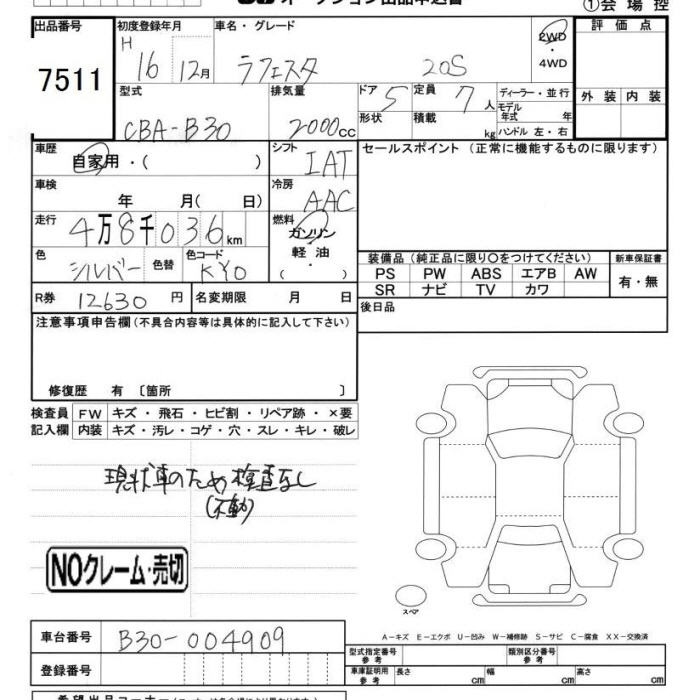 オークション出品申込書 ①会場控
出品番号 初度登録年月 車名・グレード 評価点
7511 H 16 12月 ラフェスタ 20S 2WD
・4WD
型式 排気量 ドア 定員 ディーラー・並行 外装 内装
CBA-B30 2000cc 5 7人 モデル年式 年
形状 積載 kg ハンドル 左・右
車歴 シフト セールスポイント (正常に機能するものに限ります)
自家用・( ) IAT
車検 冷房
年 月( 日) AAC
走行 燃料
4万8千036km ガソリン
色 色替 色コード 軽油 装備品(純正品に限り○をつけてください) 新車保証書
シルバー KY0 ( ・ ) PS PW ABS エアB AW 有・無
R券 12630円 名変期限 月 日 SR ナビ TV カワ
注意事項申告欄(不具合内容等は具体的に記入して下さい) 後日品
修復歴 有 〔箇所 〕
検査員 FW キズ・飛石・ヒビ割・リペア跡・×要
記入欄 内装 キズ・汚レ・コゲ・穴・スレ・キレ・破レ
現状車のため検査なし
(不動)
NOクレーム・売切
スペア
A-キズ E-エクボ U-凹み W-補修跡 S-サビ C-腐食 XX-交換済
車台番号 B30-004909 型式指定番号 参考 類別区分番号 参考
登録番号 車庫証明用 参考 長さ cm 幅 cm 高さ cm